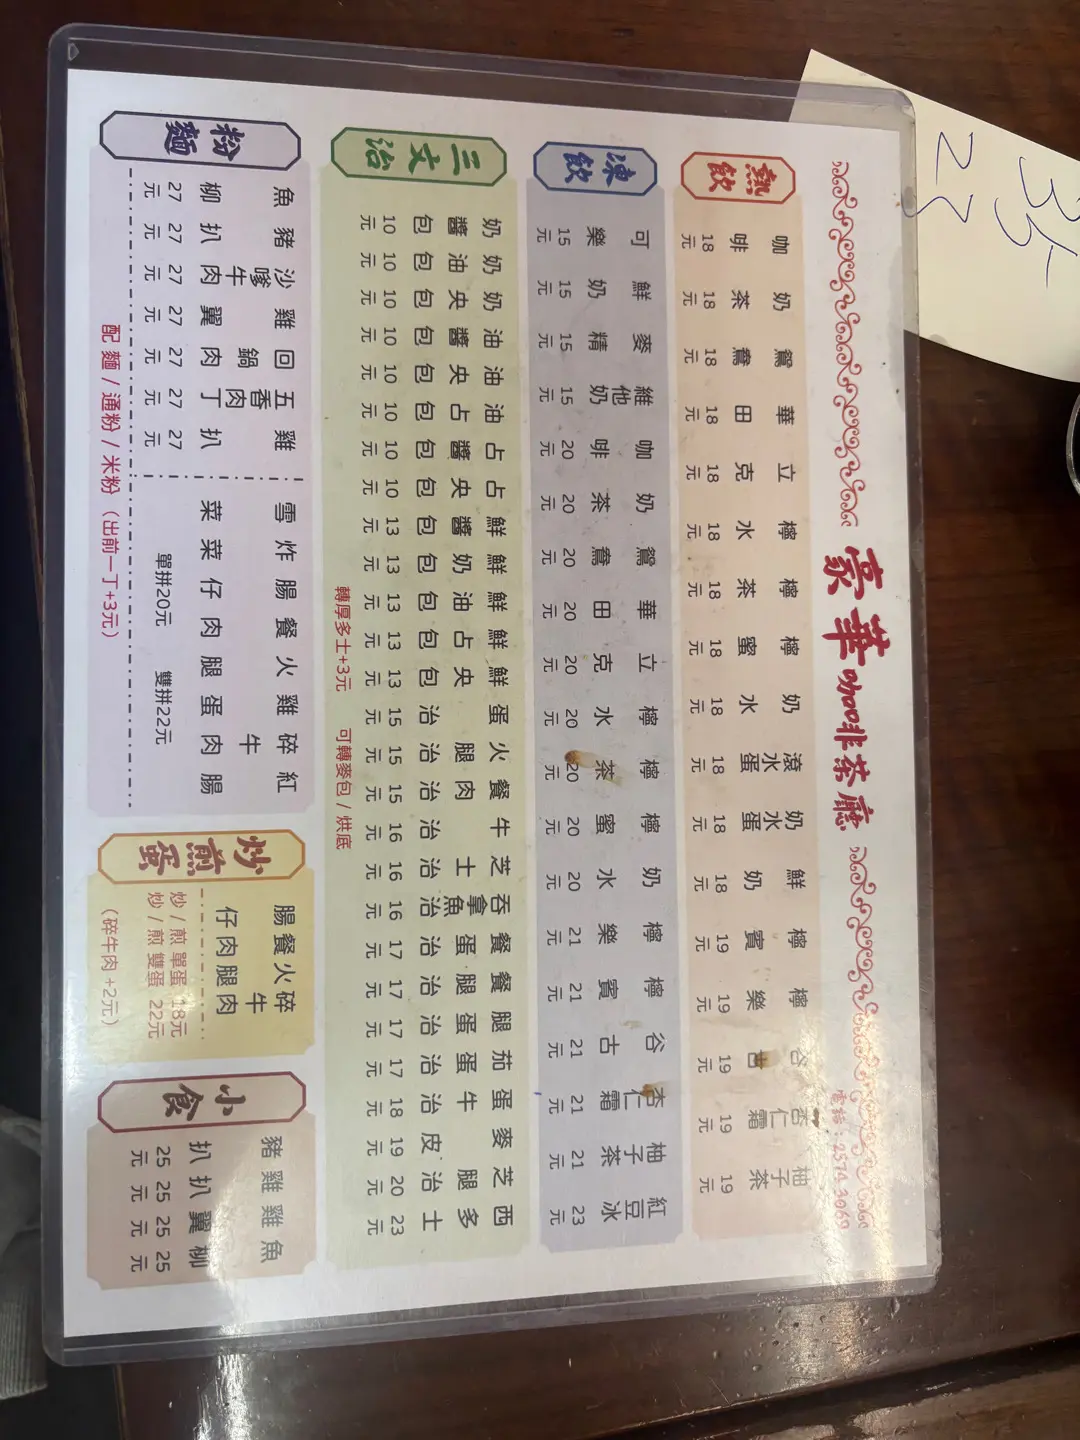 豪華咖啡茶廳
電話：2574 3069
熱飲
咖啡 18元
奶茶 18元
鴛鴦 18元
華田 18元
立克 18元
檸水 18元
檸茶 18元
檸蜜 18元
奶水 18元
滾水蛋 18元
奶水蛋 18元
鮮奶 18元
檸賓 19元
檸樂 19元
谷古 19元
杏仁霜 19元
柚子茶 19元
凍飲
可樂 15元
鮮奶 15元
麥精 15元
維他奶 15元
咖啡 20元
奶茶 20元
鴛鴦 20元
華田 20元
立克 20元
檸水 20元
檸茶 20元
檸蜜 20元
奶水 20元
檸樂 21元
檸賓 21元
谷古 21元
杏仁霜 21元
柚子茶 21元
紅豆冰 23元
三文治
奶醬包 10元
奶油包 10元
奶央包 10元
油醬包 10元
油央包 10元
油占包 10元
占醬包 10元
占央包 10元
鮮醬包 13元
鮮奶包 13元
鮮油包 13元
鮮占包 13元
鮮央包 13元
蛋治 15元
火腿治 15元
餐肉治 15元
牛治 16元
芝士治 16元
吞拿魚治 16元
餐蛋治 17元
餐腿治 17元
腿蛋治 17元
茄蛋治 17元
蛋牛治 18元
麥皮 19元
芝腿治 20元
西多士 23元
轉厚多士+3元 可轉麥包 / 烘底
粉麵
魚柳 27元
豬扒 27元
沙嗲牛肉 27元
雞翼 27元
回鍋肉 27元
五香肉丁 27元
雞扒 27元
雪菜
炸菜
腸仔
餐肉
火腿
雞蛋
碎牛肉
紅腸
單拼20元 雙拼22元
配 麵 / 通粉 / 米粉（出前一丁+3元）
炒煎蛋
腸仔
餐肉
火腿
碎牛肉
炒 / 煎 單蛋 18元
炒 / 煎 雙蛋 22元
（碎牛肉 +2元）
小食
豬扒 25元
雞扒 25元
雞翼 25元
魚柳 25元
35